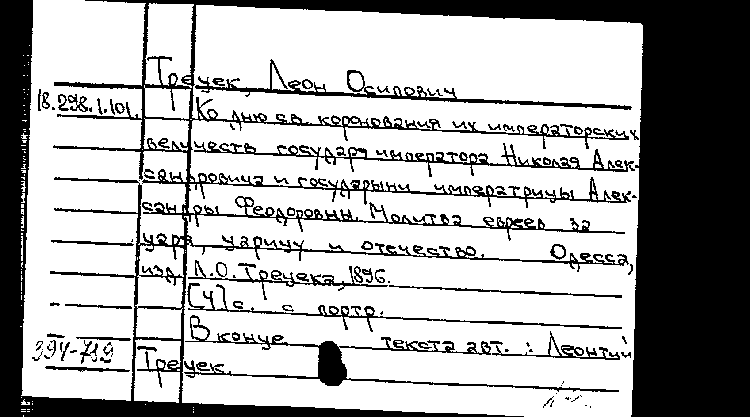 Трецек, Леон Осипович
18.298.1.101. Ко дню св. коронования их императорских
величеств государя императора Николая Алек-
сандровича и государыни императрицы Алек-
сандры Феодоровны. Молитва евреев за
царя, царицу и отечество. Одесса,
изд. Л.О. Трецека, 1896.
[4] с. с портр.
В конце текста авт.: Леонтий
394-789 Трецек.